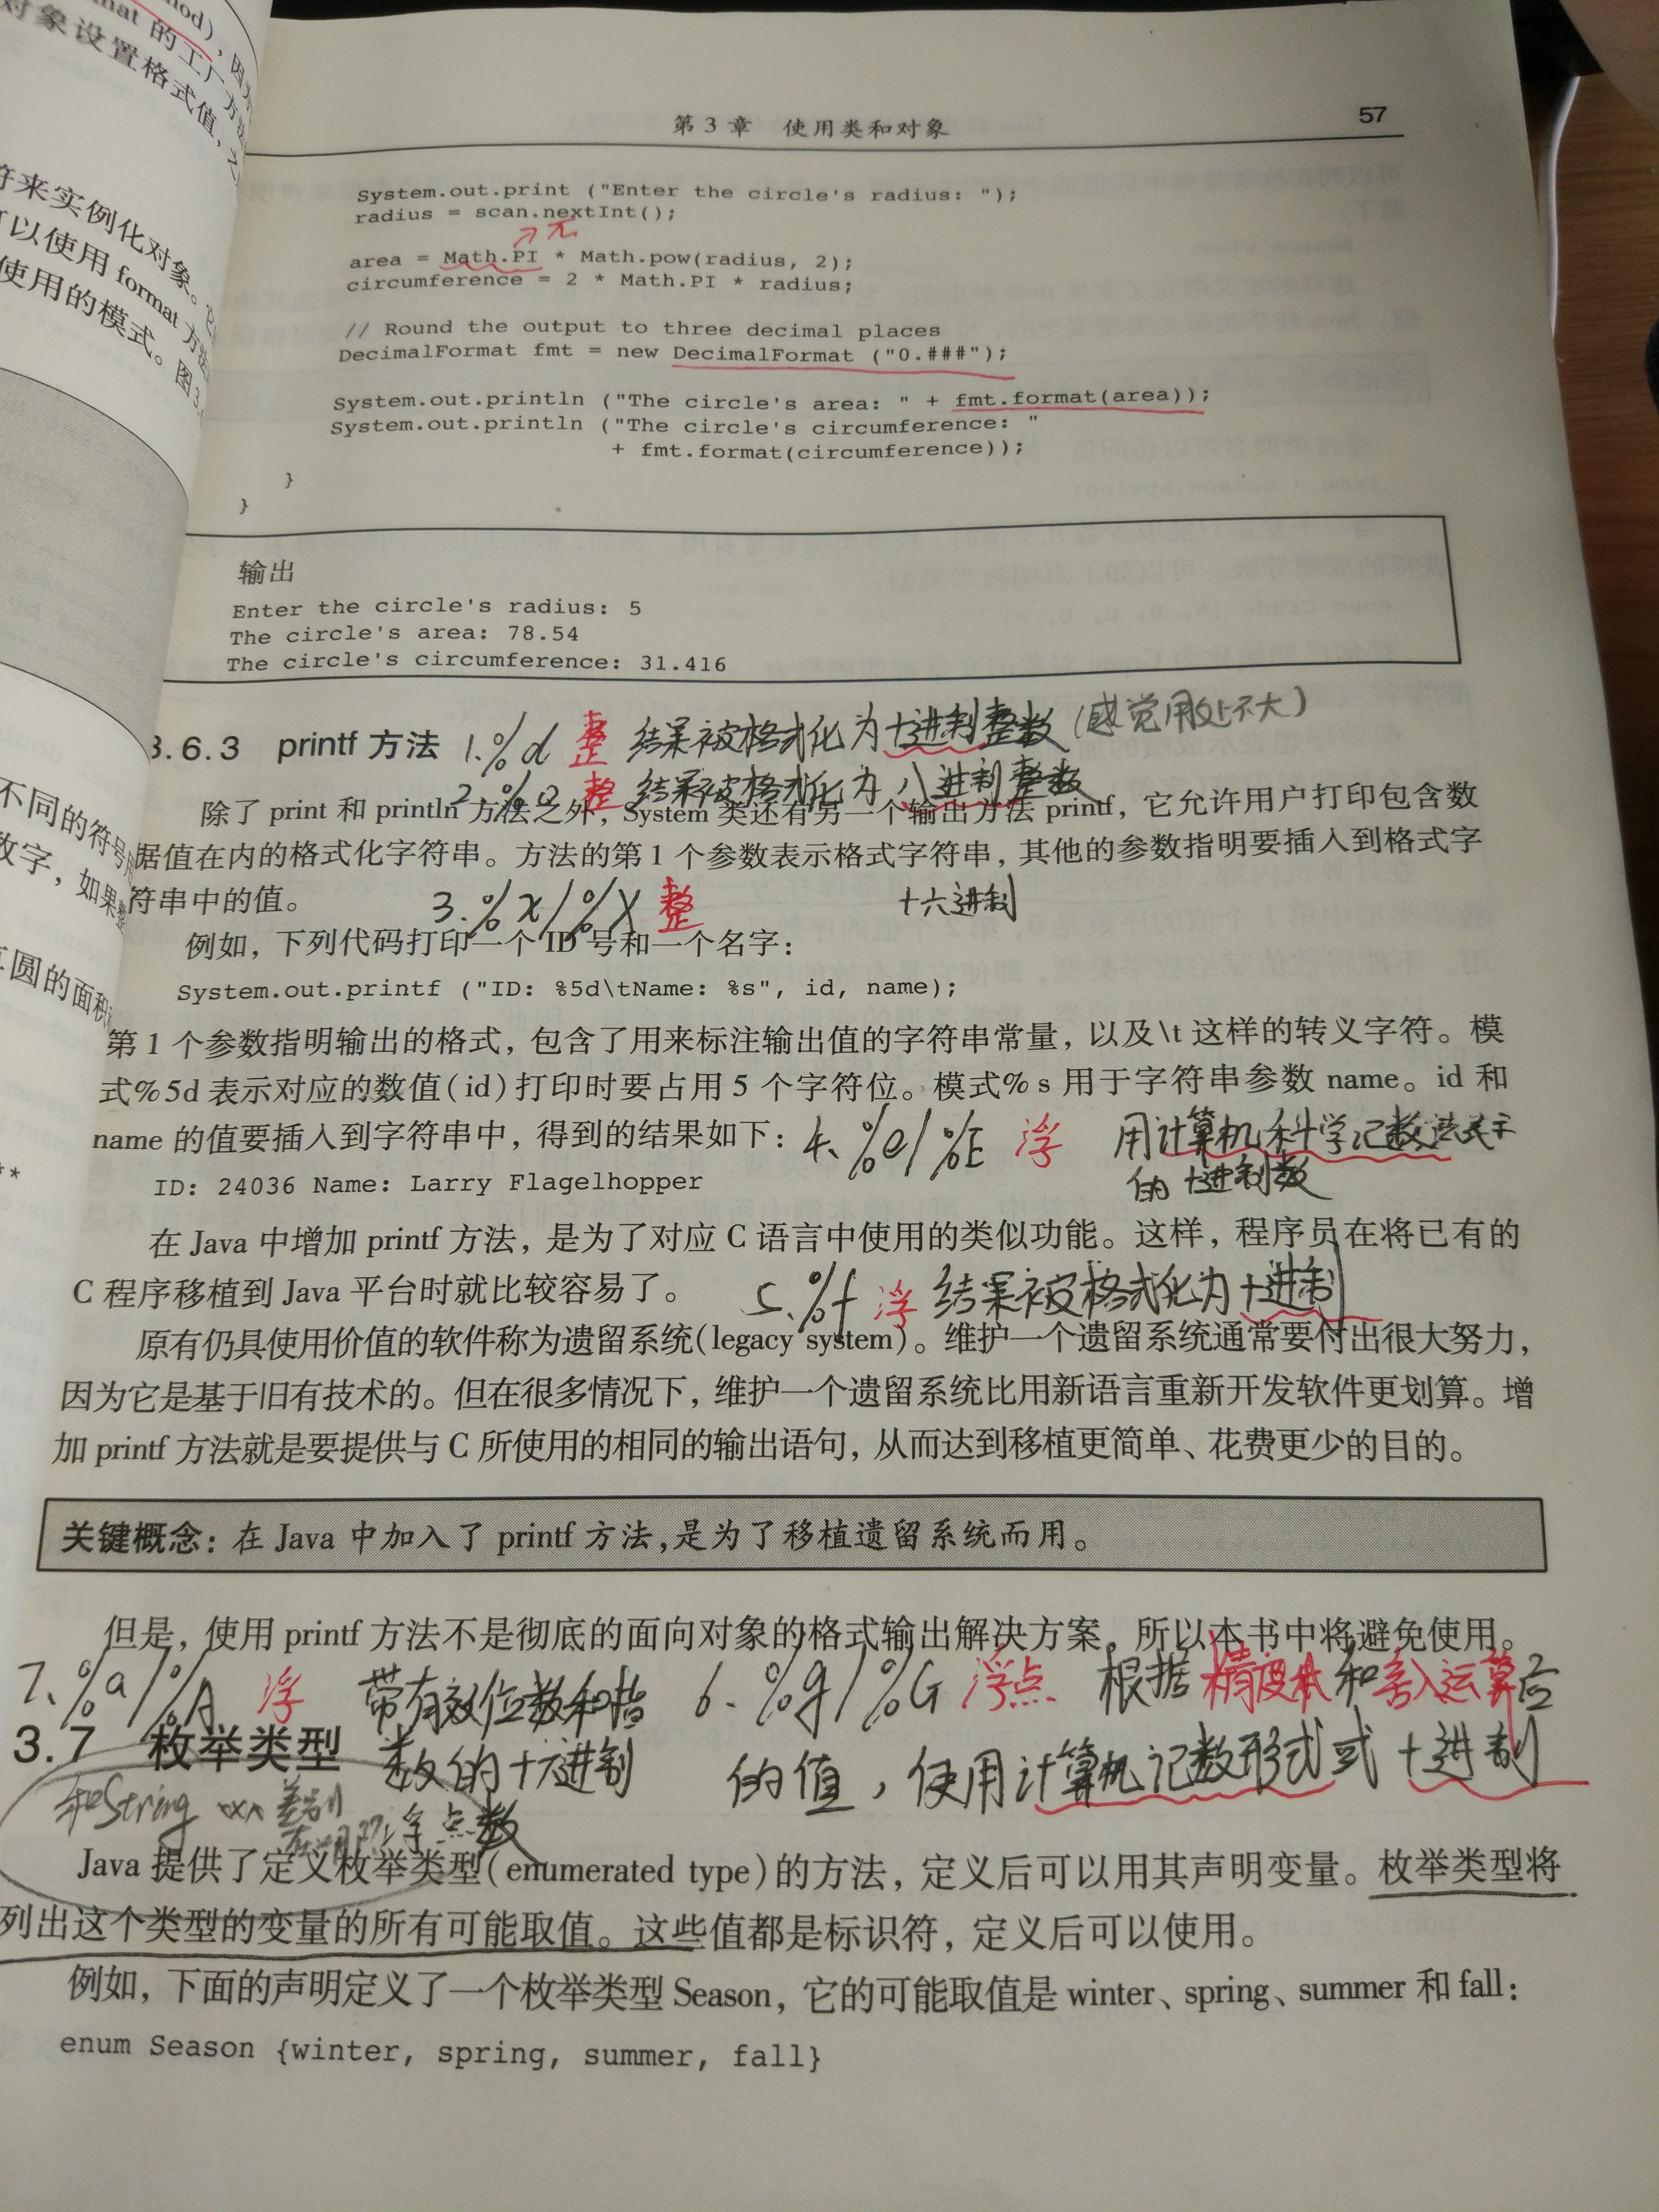 第 3 章　使用类和对象
57
System.out.print ("Enter the circle's radius: ");
radius = scan.nextInt();
area = Math.PI * Math.pow(radius, 2);
circumference = 2 * Math.PI * radius;
// Round the output to three decimal places
DecimalFormat fmt = new DecimalFormat ("0.###");
System.out.println ("The circle's area: " + fmt.format(area));
System.out.println ("The circle's circumference: "
+ fmt.format(circumference));
}
}
输出
Enter the circle's radius: 5
The circle's area: 78.54
The circle's circumference: 31.416
3.6.3　printf 方法
1. %d 整 结果被格式化为十进制整数 (感觉用处不大)
2. %o 整 结果被格式化为八进制整数
除了 print 和 println 方法之外，System 类还有另一个输出方法 printf，它允许用户打印包含数
据值在内的格式化字符串。方法的第 1 个参数表示格式字符串，其他的参数指明要插入到格式字
符串中的值。
3. %x/%X 整 十六进制
例如，下列代码打印一个 ID 号和一个名字：
System.out.printf ("ID: %5d\tName: %s", id, name);
第 1 个参数指明输出的格式，包含了用来标注输出值的字符串常量，以及\t 这样的转义字符。模
式%5d 表示对应的数值(id)打印时要占用 5 个字符位。模式%s 用于字符串参数 name。id 和
name 的值要插入到字符串中，得到的结果如下：
4. %e/%E 浮 用计算机科学记数法表示
的十进制数
ID: 24036 Name: Larry Flagelhopper
在 Java 中增加 printf 方法，是为了对应 C 语言中使用的类似功能。这样，程序员在将已有的
C 程序移植到 Java 平台时就比较容易了。
5. %f 浮 结果被格式化为十进制
原有仍具使用价值的软件称为遗留系统(legacy system)。维护一个遗留系统通常要付出很大努力，
因为它是基于旧有技术的。但在很多情况下，维护一个遗留系统比用新语言重新开发软件更划算。增
加 printf 方法就是要提供与 C 所使用的相同的输出语句，从而达到移植更简单、花费更少的目的。
关键概念：在 Java 中加入了 printf 方法，是为了移植遗留系统而用。
但是，使用 printf 方法不是彻底的面向对象的格式输出解决方案，所以本书中将避免使用。
6. %g/%G 浮点 根据精度和舍入运算后
的值，使用计算机记数形式或十进制
7. %a/%A 浮 带有效位数和指
数的十六进制
浮点数
3.7　枚举类型
和String 差别
Java 提供了定义枚举类型(enumerated type)的方法，定义后可以用其声明变量。枚举类型将
列出这个类型的变量的所有可能取值。这些值都是标识符，定义后可以使用。
例如，下面的声明定义了一个枚举类型 Season，它的可能取值是 winter、spring、summer 和 fall：
enum Season {winter, spring, summer, fall}